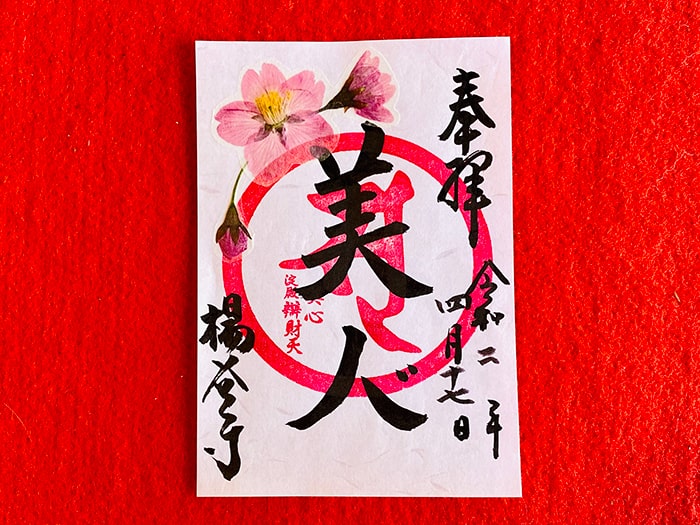 奉拝
令和二年
四月十七日
美人
淀殿辯財天
楊谷寺